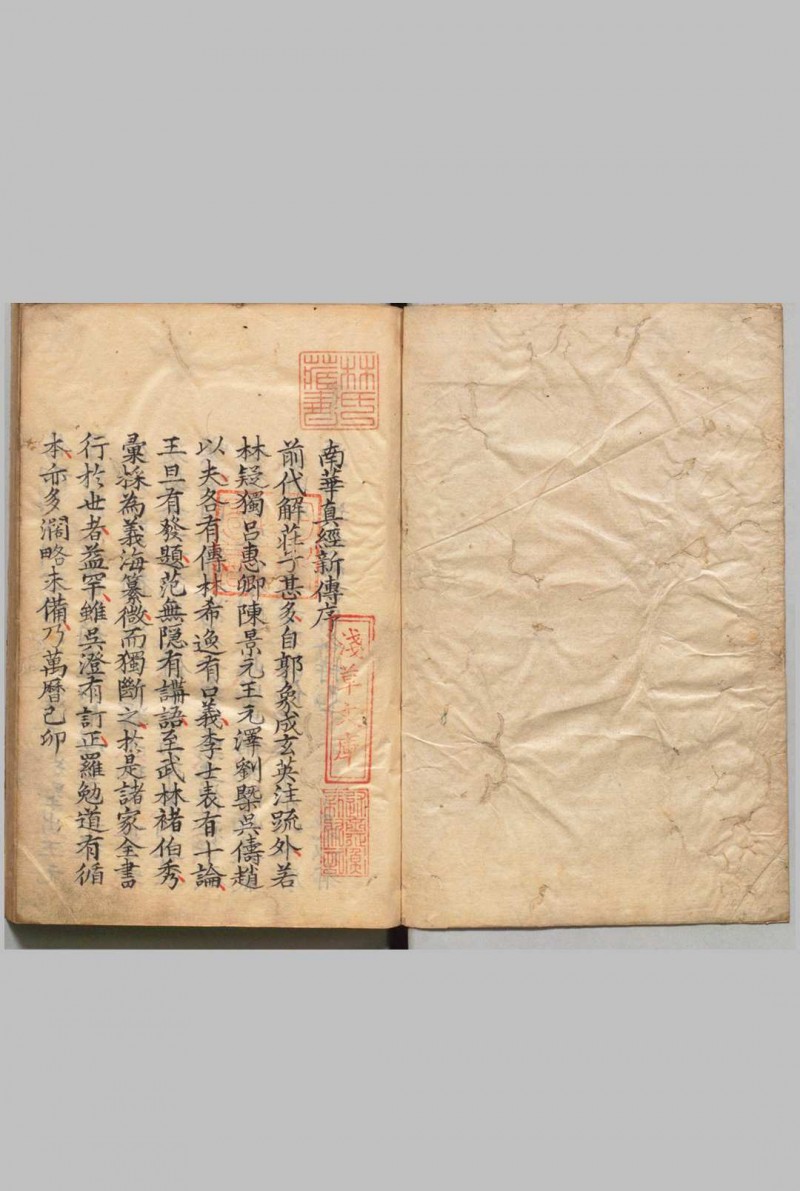 南華真經新傳序
前代解莊子甚多自郭象成玄英注疏外若
林疑獨呂惠卿陳景元王元澤劉槩吳儔趙
以夫各有傳林希逸有口義李士表有十論
王旦有發題范無隱有講語至武林褚伯秀
彙採為義海纂微而獨斷之於是諸家全書
行於世者益罕雖吳澄有訂正羅勉道有循
本亦多濶略未備乃萬曆己卯
林氏藏書
淺草文庫